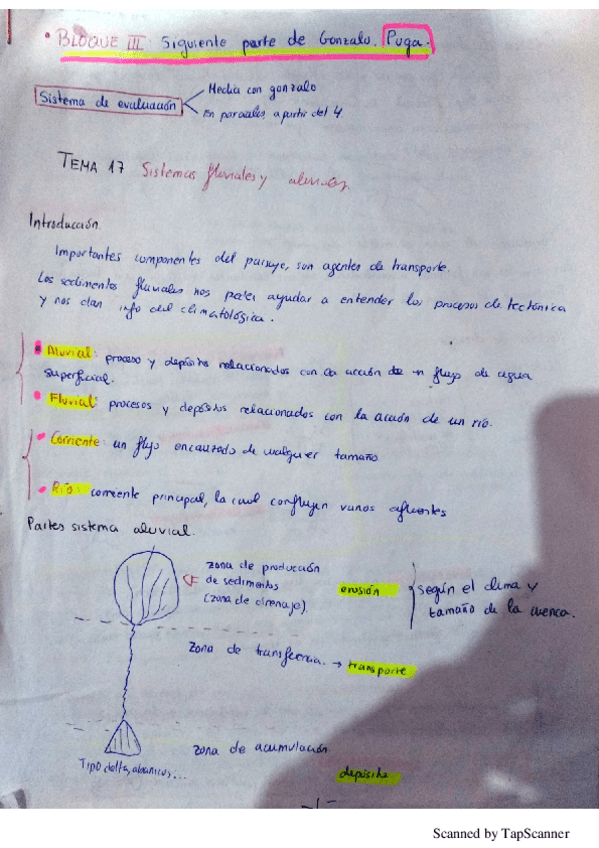 • BLOQUE III Siguiente parte de Gonzalo. Puga.
Sistema de evaluación
Media con gonzalo
En parciales, a partir del 4
TEMA 17 Sistemas fluviales y aluviales.
Introducción
Importantes componentes del paisaje, son agentes de transporte.
Los sedimentos fluviales nos puden ayudar a entender los procesos de tectónica
y nos dan info del climatológica.
• Aluvial: proceso y depósitos relacionados con la acción de un flujo de agua
superficial.
• Fluvial: procesos y depósitos relacionados con la acción de un río.
• Corriente: un flujo encauzado de cualquier tamaño
• Río: corriente principal, la cual confluyen varios afluentes
Partes sistema aluvial.
zona de producción
de sedimentos
(zona de drenaje).
erosión
según el clima y
tamaño de la cuenca.
zona de transferencia. → transporte
zona de acumulación
Tipo delta, abanicos...
depósito
-1-
Scanned by TapScanner